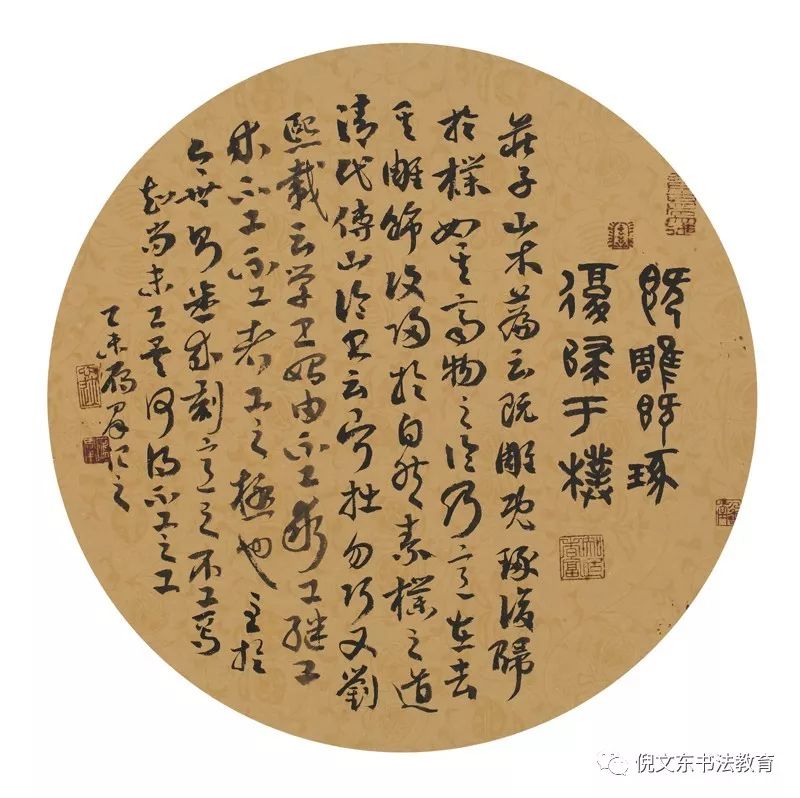 既雕既琢
復歸于樸
莊子山木篇云既雕既琢復歸
於樸物之乃意在去
其雕飾復歸於自然素樸之道
清代傅山論書云寧拙勿巧又劉
熙載云学書始由不工求工继工
求不工不工者工之極也至於
今世刻意之不工焉
知尚未工不工之工
乙未
倪文东书法教育